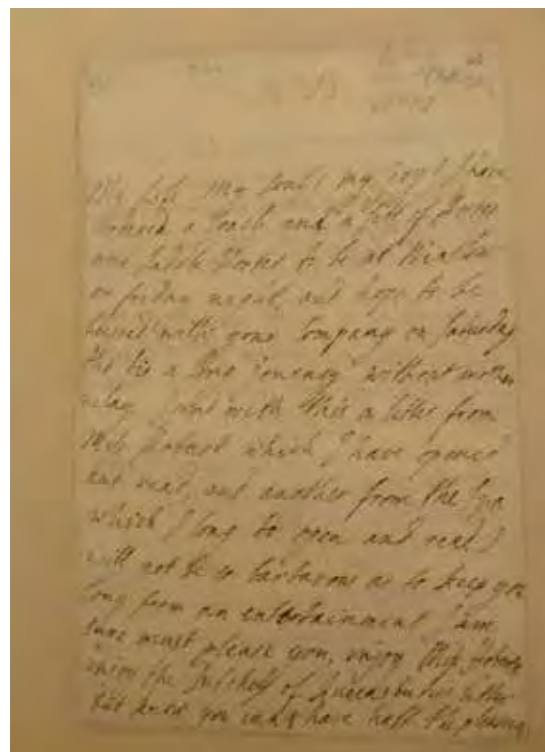 My Life my Soul! my Joy! I have
ordered a Coach and a Sett of Horses
and Saddle Horses to be at
on friday night, and hope to be
with your Company on Saturday
tho tis a long Journey without
delay. I send with this a letter from
which I have opened
and read, and another from the
which I long to open and read I
will not be so barbarous as to keep you
long from an entertainment I am
sure must please you, enjoy
enjoy the Dutchess of Queensburys letter
but know you can't have half the pleasure